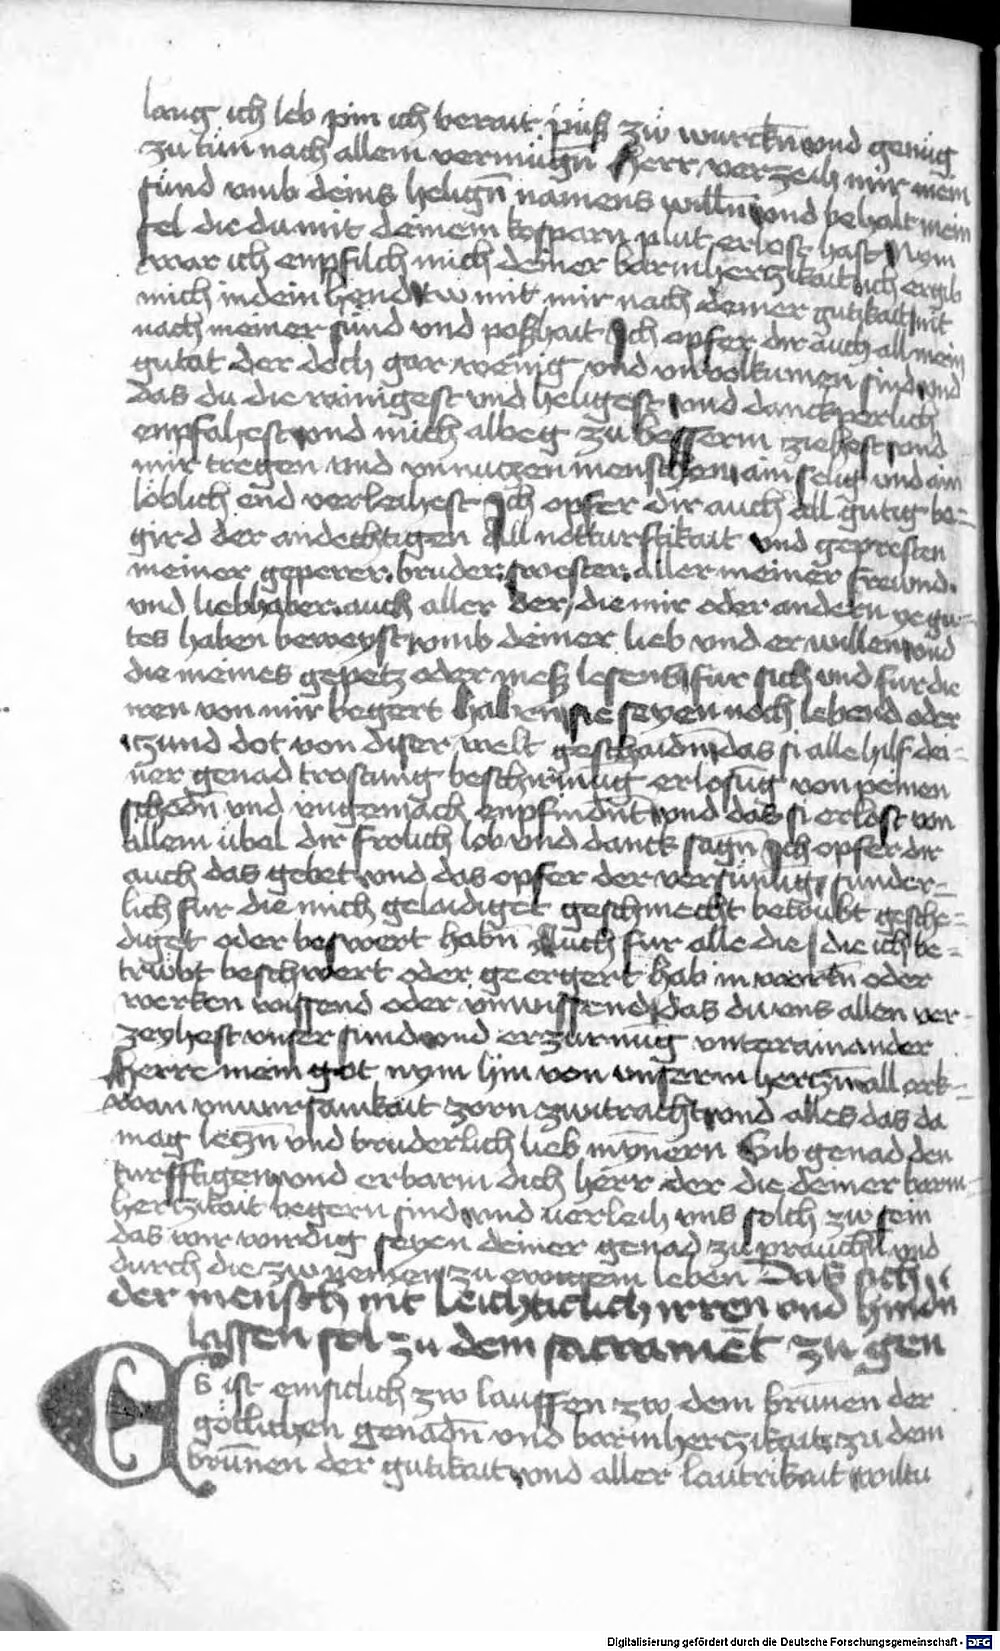 lang ich leb pin ich berait püß zw wurckn̄ und genüg
zu tün nach allem vermügn̄ Herr verzeih mir mein
sünd umb deins heilign̄ namens willn̄ und behalt mein
sel die du mit deinem kosparn plut erlost hast Nym
war ich enpfilch mich deiner barmhertzikait ich ergib
mich in dein hend tw mit mir nach deiner gutikait nit
nach meiner sünd und poßhait Ich opfer dir auch all mein
gutat der doch gar wenig und unvolkumen sind und
das du die rainigest und heiligest und danckperlich
enpfahest und mich albeg zu besserm ziehest und
mir tregen und unnutzen menschen ain selig und ain
löblich end verleihest Ich opfer dir auch all gutig be-
gird der andechtigen All notturftikait und gepresten
meiner geperer bruder swester aller meiner freund
und liebhaber auch aller der die mir oder andern ye gu-
tes haben beweyst umb deiner lieb und er willen und
die meines gepetz oder meß lesens fur sich und fur die
iren von mir begert haben sie seyen noch lebend oder
itzund dot von diser welt geschaidn̄ das si alle hilf dei-
ner genad trostung beschirmug erlosūg von peinen
schedn̄ und ungemach enpfindn̄t und das si erlost von
allem übel dir frolich lob und danck sagn̄ Ich opfer dir
auch das gebet und das opfer der versünūg sunder-
lich fur die mich gelaidiget geschmecht betrubt gesche-
diget oder beswert habn̄ Auch fur alle die die ich be-
trübt beschwert oder geergert hab in wortn̄ oder
werken wissend oder unwissend das du uns allen ver-
zeyhest unser sund und erzurnūg unterainander
Herre mein got nym hin von unserm hertzn̄ all ark-
wan unwirsamkait zorn zwitracht und alles das da
mag letzn̄ und bruderlich lieb mȳnern Gib genad den
turfftigen und erbarm dich herr der die deiner barm-
hertzikait begern sind und verleih uns solch zw sein
das wir wirdig seyen deiner genad zu prauchn̄ und
durch die zw nemen zu ewigem leben Das sich
der mensch nit leichticlich irren und hindn̄
lassen sol zu dem sacramēt zu gen
ES ist emsiclich zw lauffen zw dem brunen der
götlichen genadn̄ und barmhertzikait zu dem
brūnen der gutikait und aller lautrikait wiltu
Digitalisierung gefördert durch die Deutsche Forschungsgemeinschaft - DFG